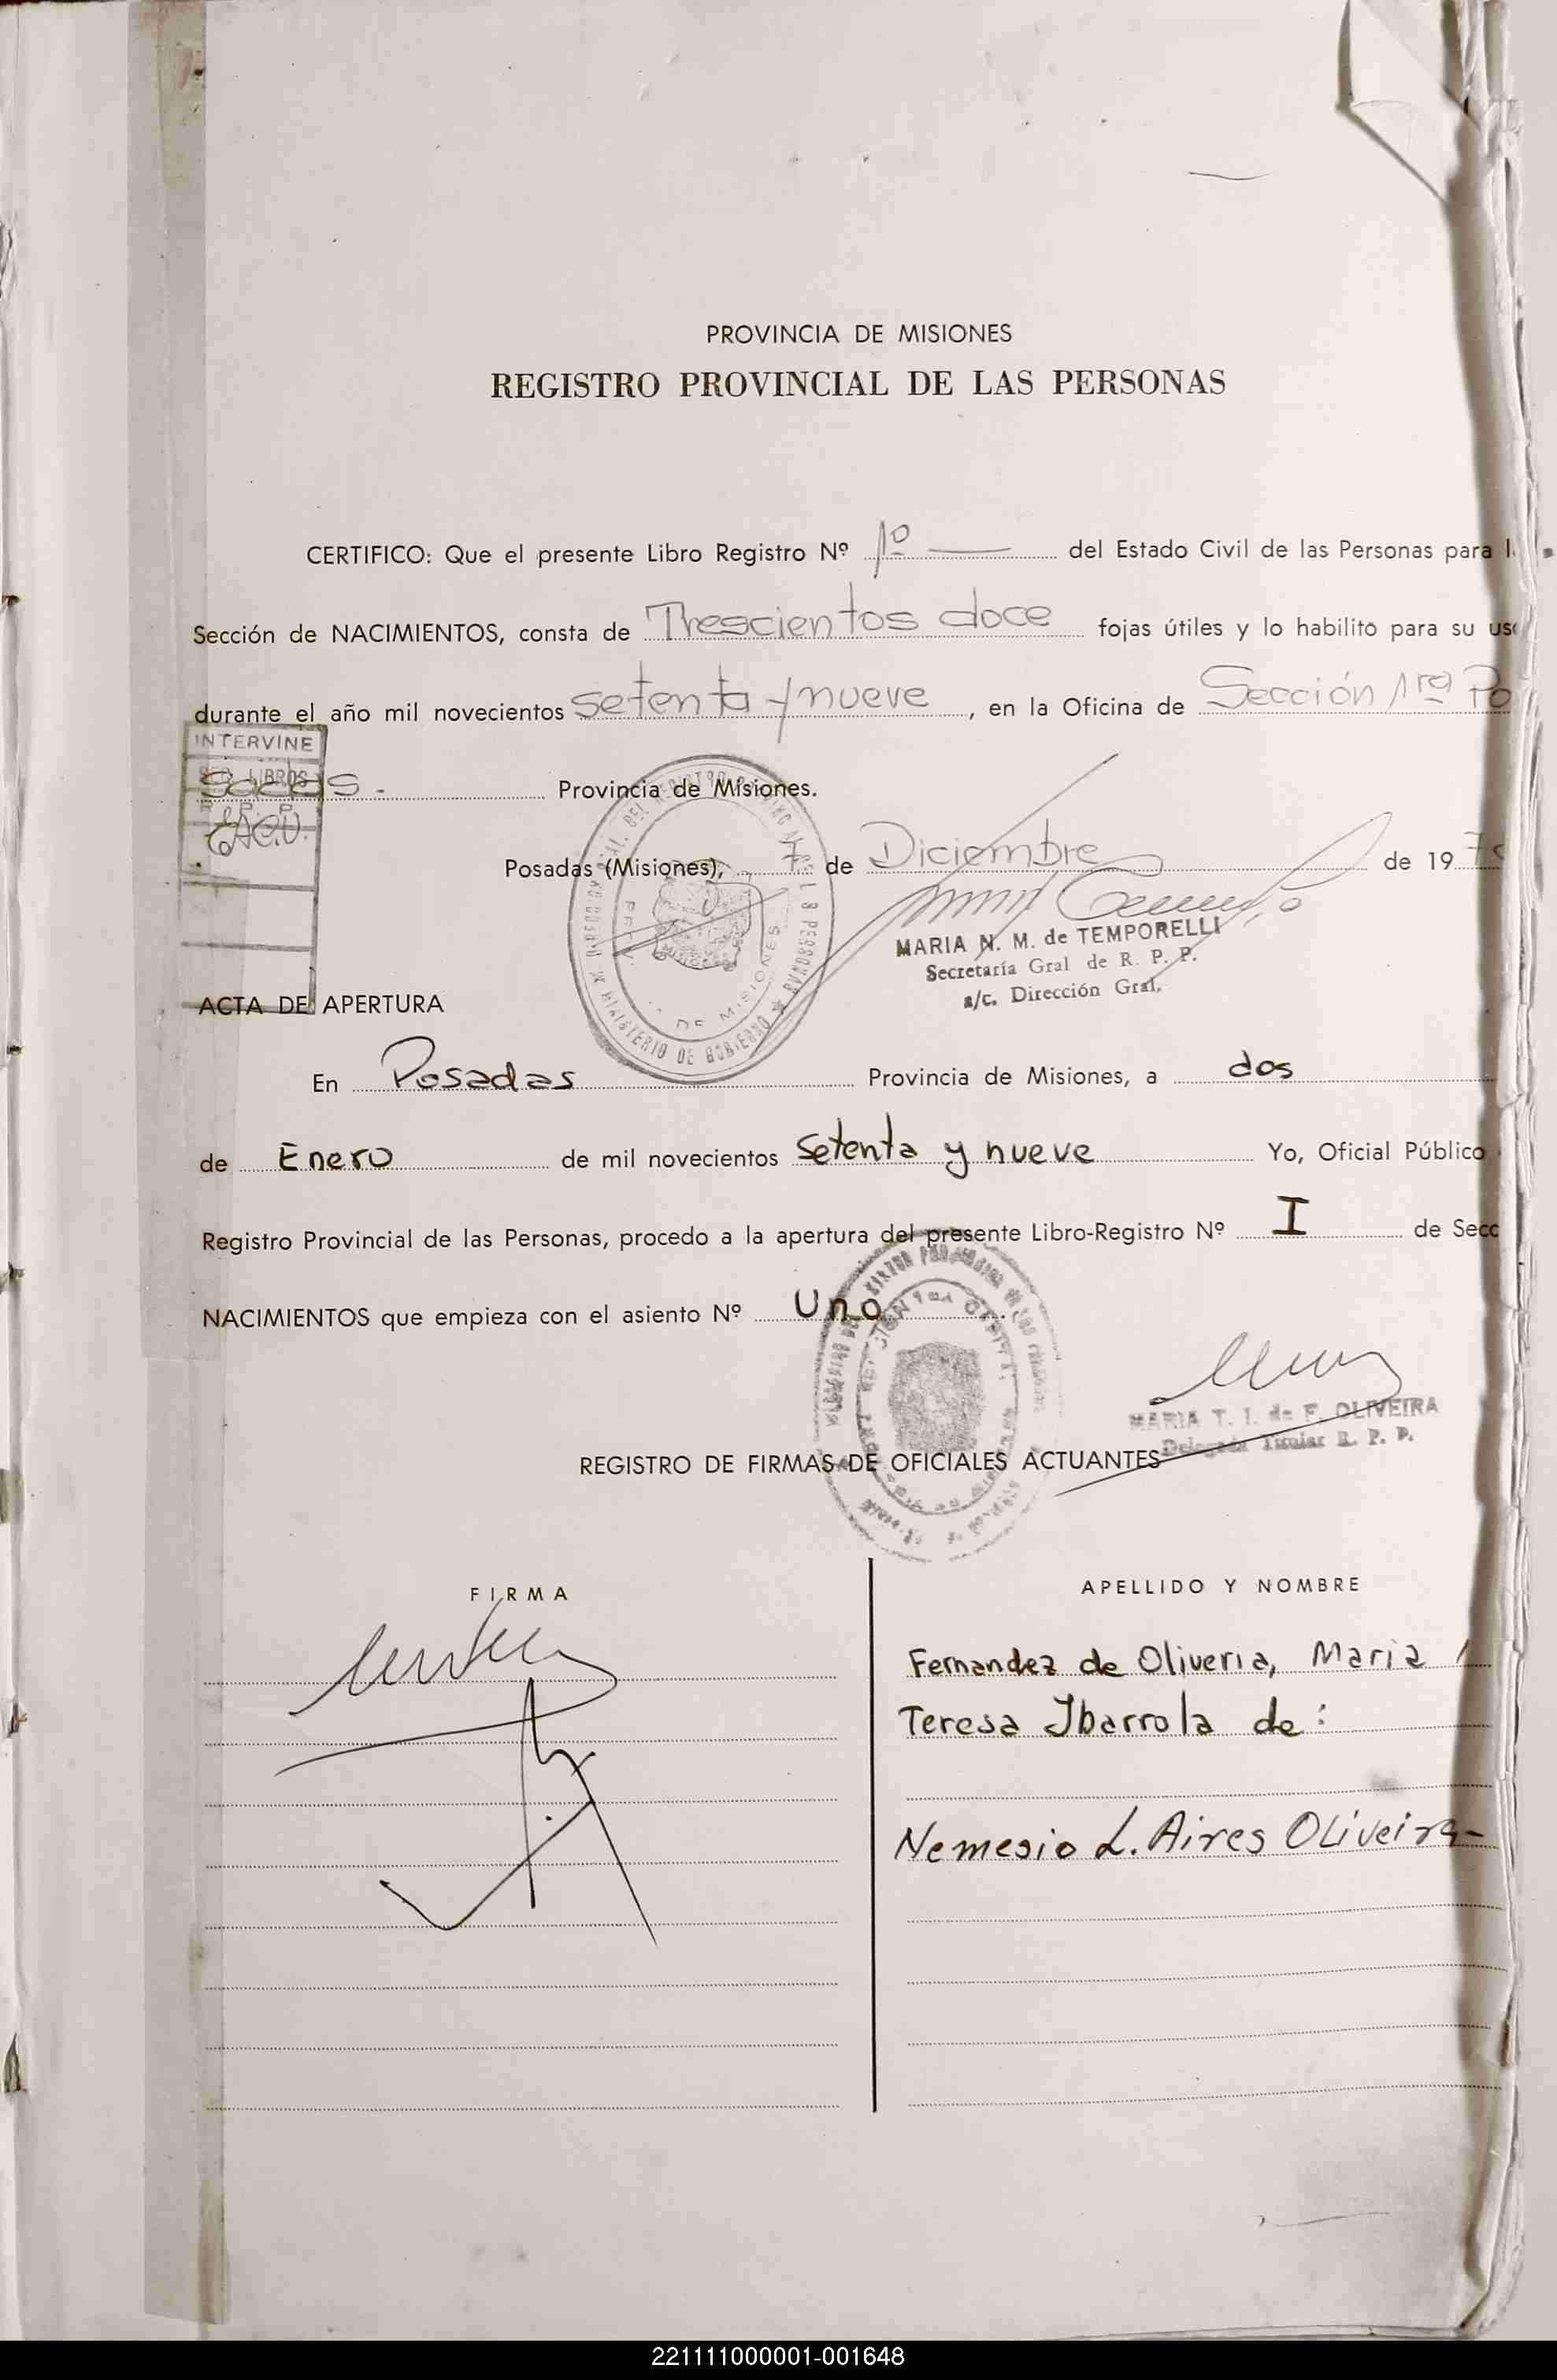 PROVINCIA DE MISIONES
REGISTRO PROVINCIAL DE LAS PERSONAS
CERTIFICO: Que el presente Libro Registro Nº 1º del Estado Civil de las Personas para l
Sección de NACIMIENTOS, consta de Trescientos doce fojas útiles y lo habilito para su uso
durante el año mil novecientos setenta y nueve, en la Oficina de Sección 1ra Po
INTERVINE
LIBROS
R. P. P.
sadas. Provincia de Misiones.
Posadas (Misiones), 7 de Diciembre de 197
MARIA N. M. de TEMPORELLI
Secretaría Gral de R. P. P.
a/c. Dirección Gral.
MINISTERIO DE GOBIERNO
DE MISIONES
ACTA DE APERTURA
En Posadas Provincia de Misiones, a dos
de Enero de mil novecientos setenta y nueve Yo, Oficial Público
Registro Provincial de las Personas, procedo a la apertura del presente Libro-Registro Nº I de Secc
NACIMIENTOS que empieza con el asiento Nº Uno
MARIA T. I. de F. OLIVEIRA
Delegada Titular R. P. P.
REGISTRO DE FIRMAS DE OFICIALES ACTUANTES
FIRMA
APELLIDO Y NOMBRE
Fernandez de Oliveria, Maria
Teresa Ibarrola de:
Nemesio L. Aires Oliveira-
221111000001-001648